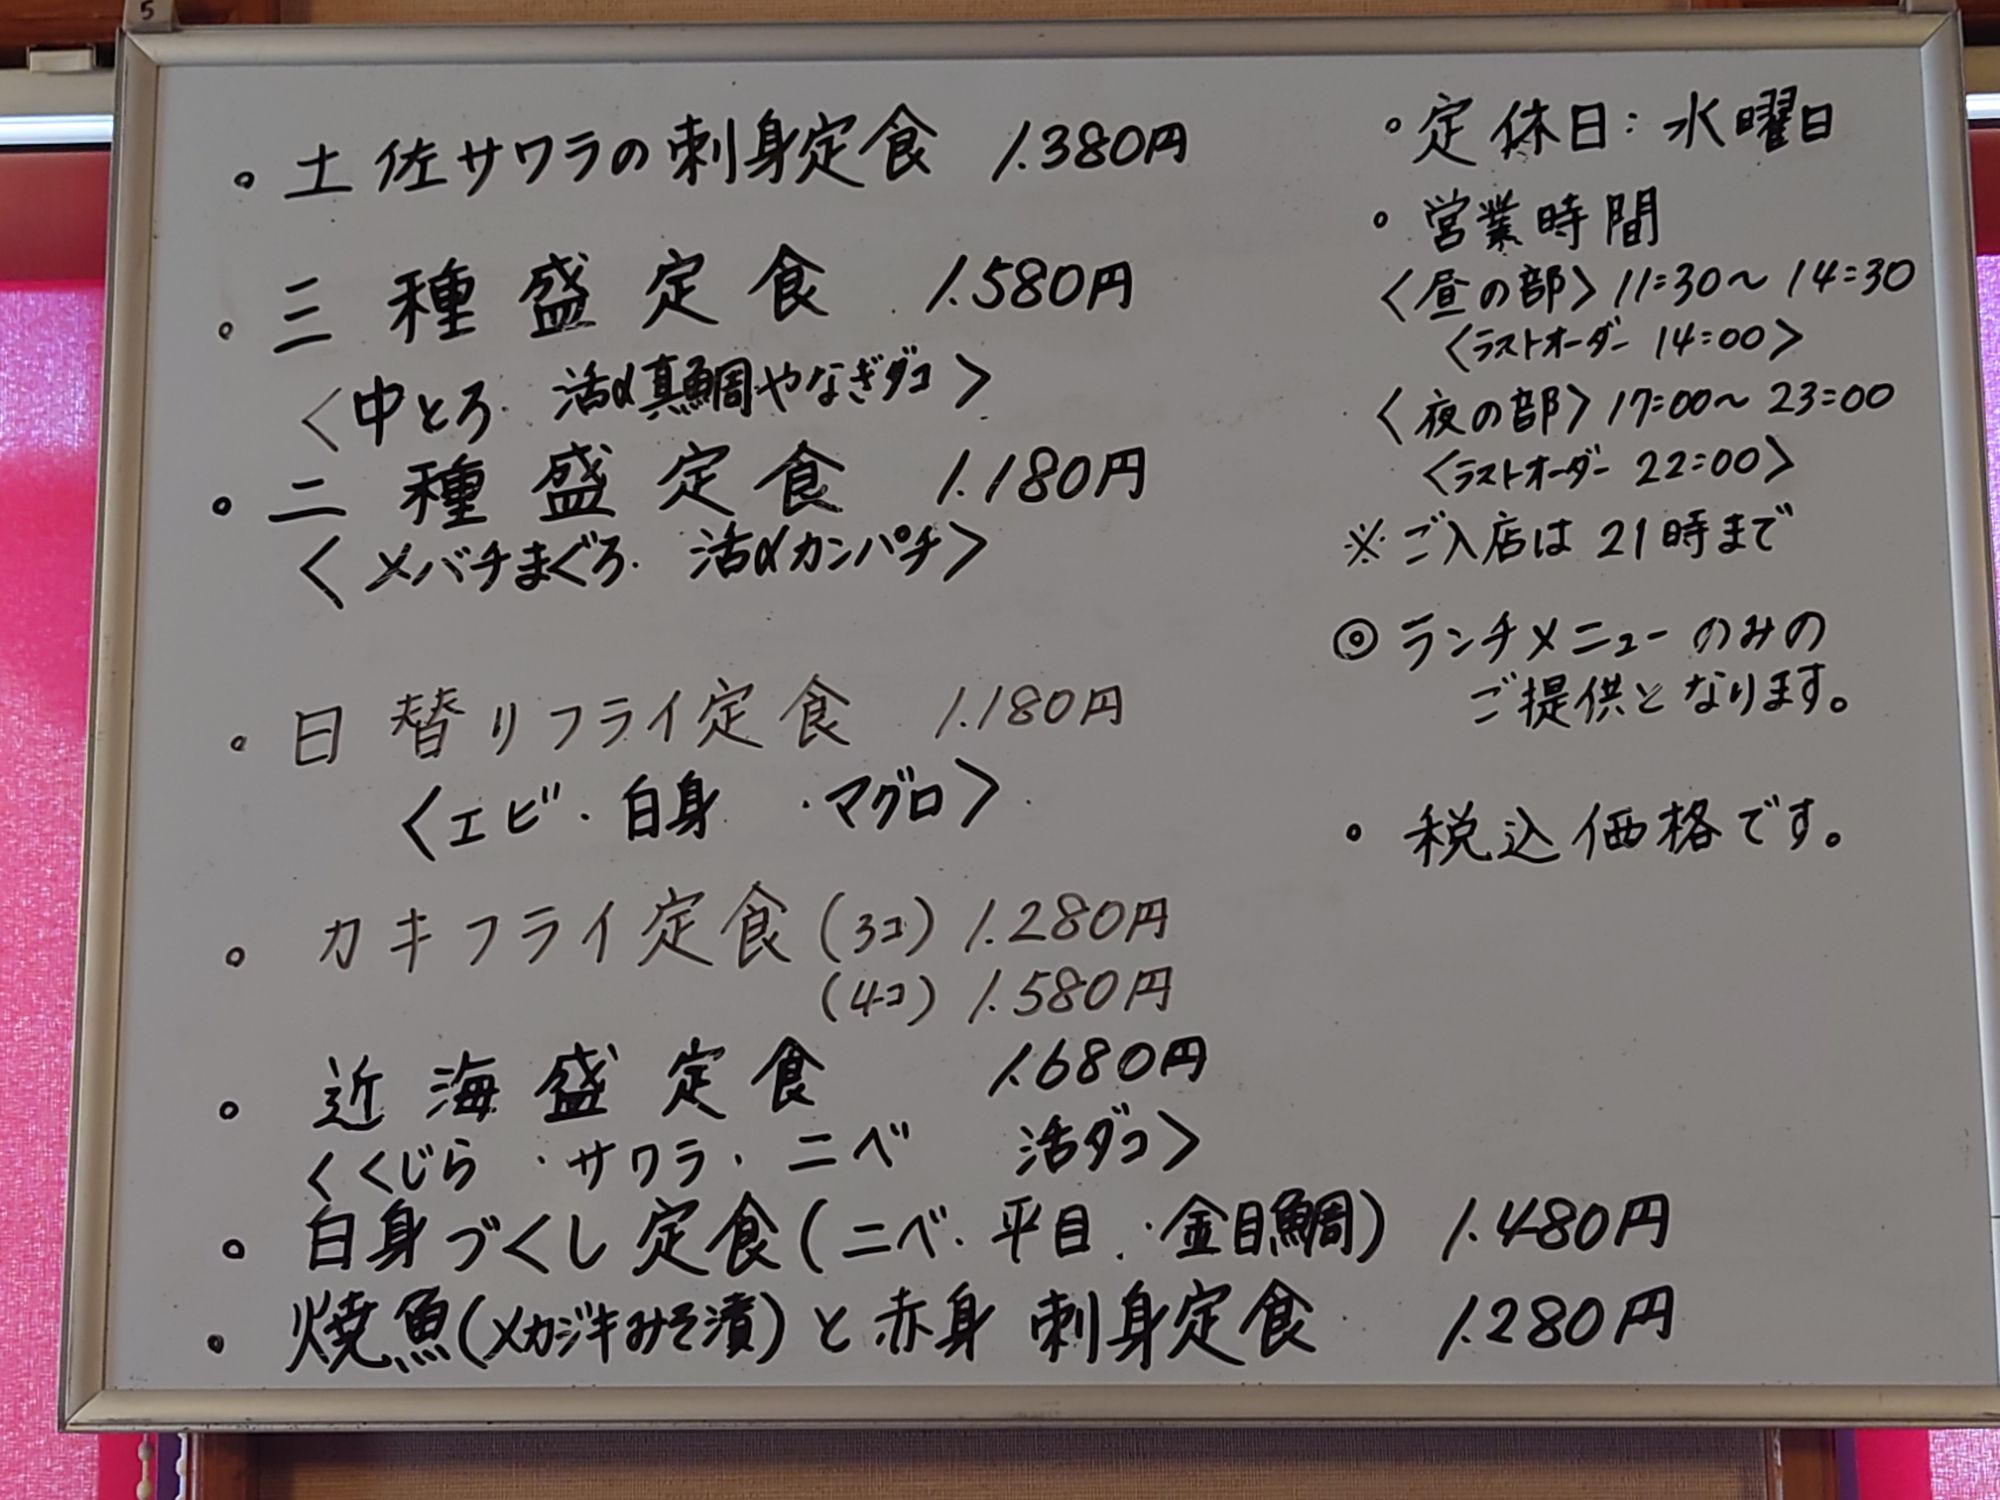 5
。土佐サワラの刺身定食 1.380円
。三種盛定食 1.580円
<中とろ. 活〆真鯛やなぎダコ>
。二種盛定食 1.180円
<メバチまぐろ. 活〆カンパチ>
。日替りフライ定食 1.180円
<エビ・白身 ・マグロ>
。カキフライ定食(3コ) 1.280円
(4コ) 1.580円
。近海盛定食 1.680円
<くじら・サワラ・ニベ 活ダコ>
。白身づくし定食(ニベ・平目・金目鯛) 1.480円
。焼魚(メカジキみそ漬)と赤身 刺身定食 1.280円
。定休日:水曜日
。営業時間
<昼の部>11:30~14:30
<ラストオーダー 14:00>
<夜の部>17:00~23:00
<ラストオーダー 22:00>
※ご入店は21時まで
◎ランチメニューのみの
ご提供となります。
。税込価格です。